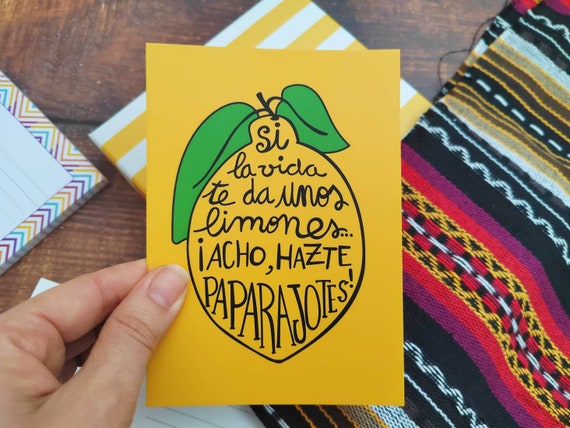 Si
la vida
te da unos
limones...
¡ACHO, HAZTE
PAPARAJOTES!